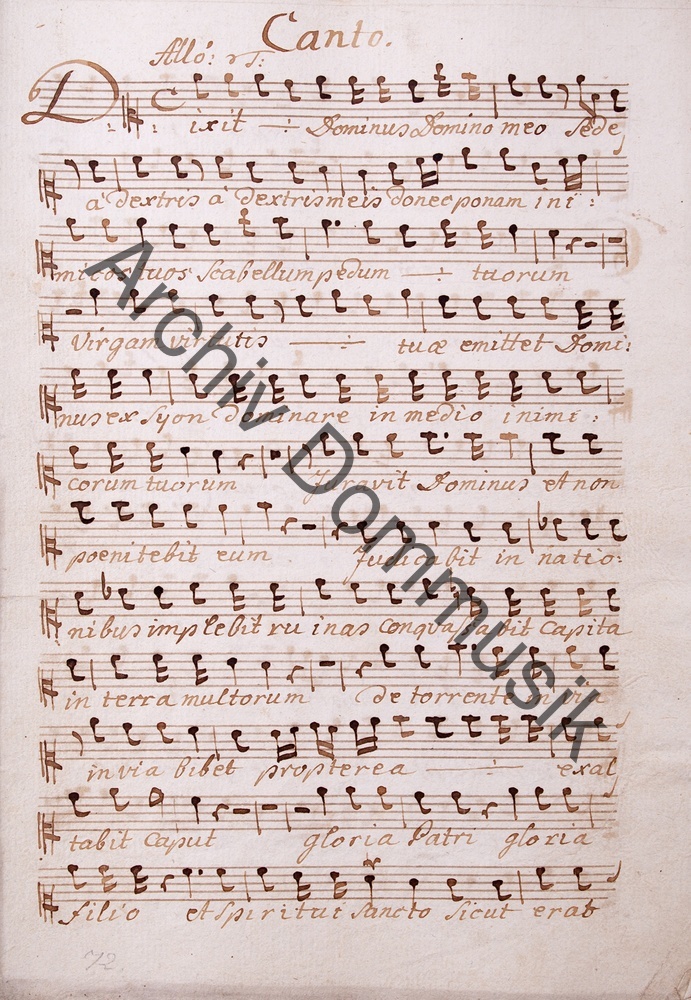 Canto.
Allo:
Dixit Dominus Domino meo sede
à dextris à dextris meis donec ponam ini:
micos tuos scabellum pedum tuorum
virgam virtutis tuæ emittet Domi:
nus ex Syon dominare in medio inimi:
corum tuorum Juravit Dominus et non
poenitebit eum Judicabit in natio:
nibus implebit ruinas conquasabit capita
in terra multorum de torrente in via
in via bibet propterea exal
tabit caput gloria Patri gloria
filio et spiritui sancto sicut erat
72
Archiv Dommusik